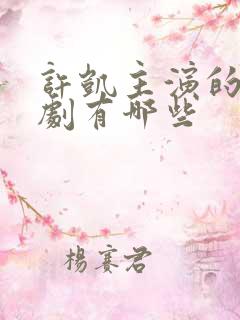 許凱主演的
劇有哪些
楊賽君